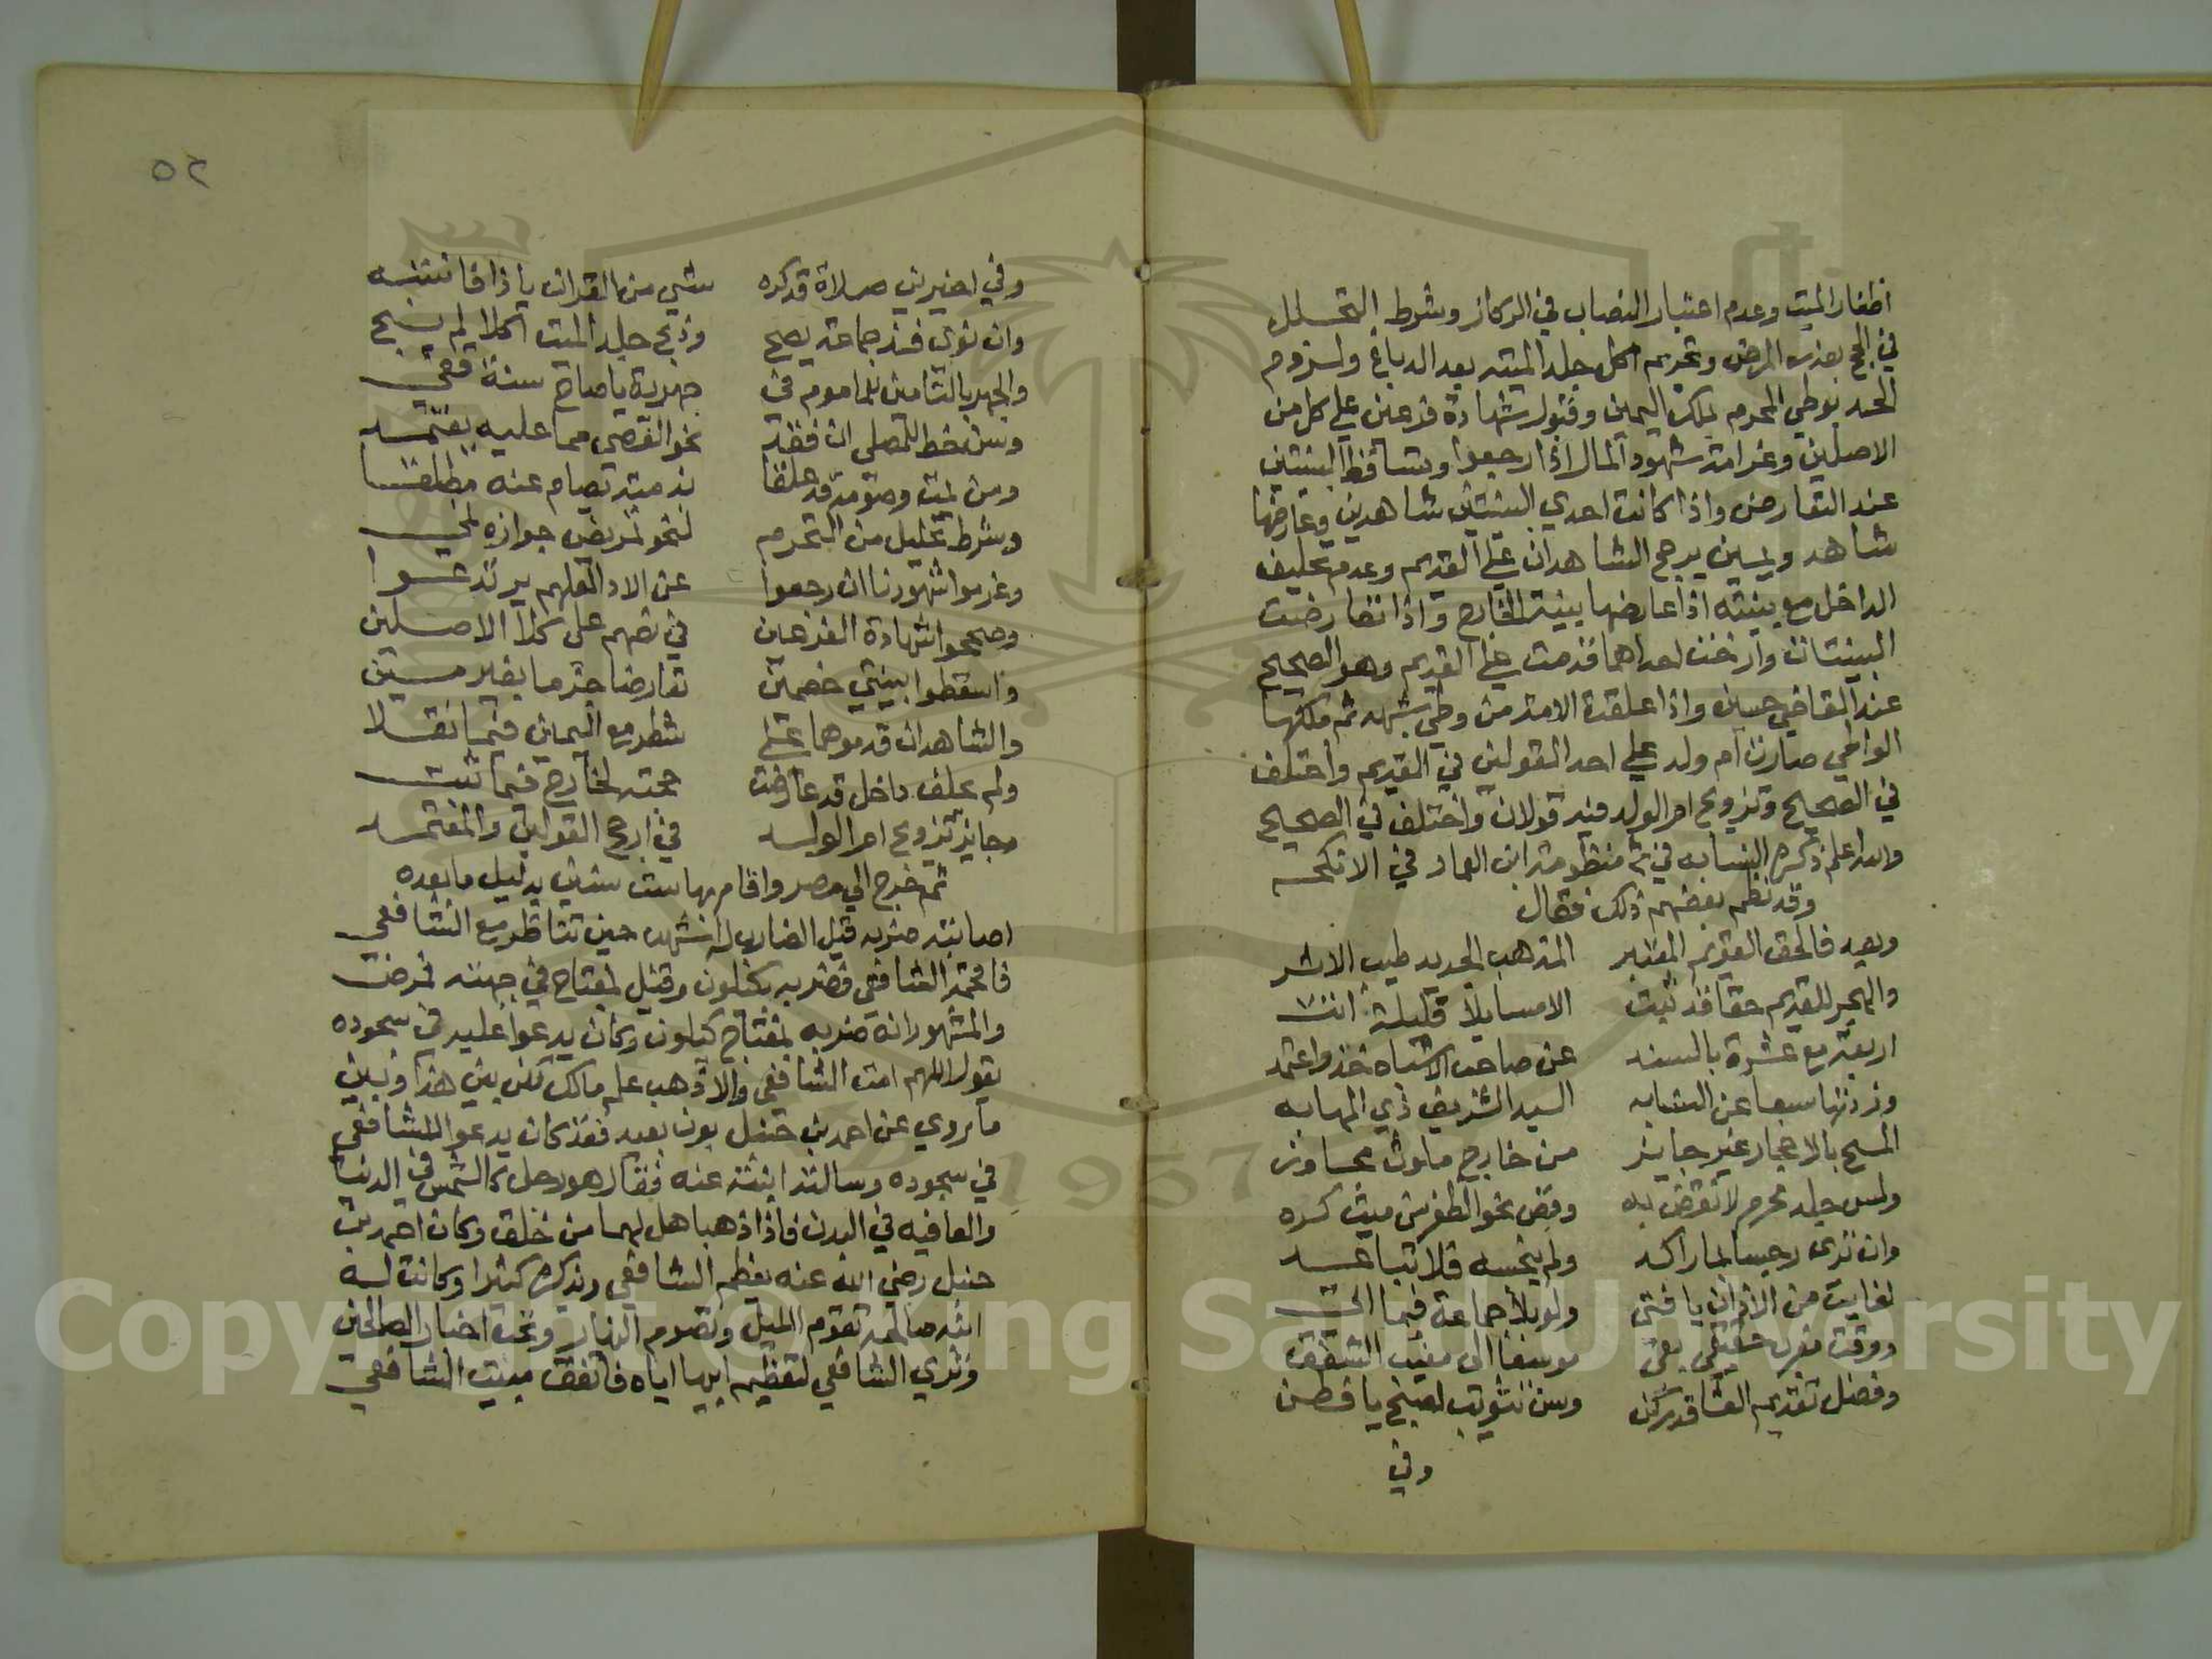 اظفار الميت وعدم اعتبار النصاب في الركاز وشرط التحلل
في الحج بعذر المرض وتحريم اكل جلد الميته بعد الدباغ ولزوم
الحد بوطي المحرم بملك اليمين وقبول شهادة فرعين علي كل من
الاصلين وغرامة شهود المال اذا رجعوا وتساقط البينتين
عند التعارض واذا كانت احدي البينتين شاهدين وعارضها
شاهد ويمين يرجح الشاهدان علي القديم وعدم تحليف
الداخل مع بينته اذا عارضها بينة الخارج واذا تعارضت
البينتان وارخت احداهما قدمت علي القديم وهو الصحيح
عند القاضي حسين واذا علقت الامة من وطي شبهه ثم ملكها
الواطي صارت ام ولد علي احد القولين في القديم واختلف
في الصحيح وتزويج ام الولد فيه قولان واختلف في الصحيح
والله اعلم ذكره النسابه في منظومة ابن العماد في الانكحه
وقد نظم بعضهم ذلك فقال
وبعد فالحق القويم المعتبر المذهب الجديد طيب الاثر
والهجر للقديم حقا قد ثبت الا مسايلا قليلة اتت
اربعة مع عشرة بالسند عن صاحب الاشباه خذ واعتمد
وزدتها سبعا عن النسابه السيد الشريف ذي المهابه
المسح بالاحجار غير جايز من خارج ملوث مجاوز
ولمس جلد محرم لا نقض به وقص نحو الظفر من ميت كره
وان تري رجسا بما راكد ولم ينجسه فلا تباعد
لفايت من الاذان يا فتي ولو بلا جماعة فيما اتي
ووقت مغرب حقيقي بقي موسعا الي مغيب الشفق
وفضل تقديم العشا قد زكن وسن تثويب لصبح يا فطن
وفي
٥٢
وفي اخيرتي صلاة قد كره شي من القران يا ذا فانتبه
وان نوي فذ جماعة يصح وذبح جلد الميت اكلا لم يبح
والجهر بالتامين للماموم في جهرية يا صاح سنة قفي
وسن خط للمصلي ان فقد نحو القصي مما عليه يعتمد
ومن يمت وصومه قد علقا بذمته يصام عنه مطلقا
وشرط تحليل من التحرم لنحو تمريض جوازه نمي
وغرموا شهودنا ان رجعوا عن الادا لعلهم يرتدعوا
وصححوا شهادة الفرعين في نصهم علي كلا الاصلين
واسقطوا بينتي خصمين تعارضا جزما بغير مين
والشاهدان قدموهما علي شطر مع اليمين فيما نقلا
ولم يحلف داخل قد عارضت حجته لخارج فيما ثبت
وجايز تزويج ام الولد في ارجح القولين والمعتمد
ثم خرج الي مصر واقام بها ست سنين بدليل ما بعده
اصابته ضربه قيل الضارب له اشهب حين تناظر مع الشافعي
فافحمه الشافعي فضربه بكيلون وقيل بمفتاح في جبهته فمرض
والمشهور انه ضربه بمفتاح كيلون وكان يدعوا عليه في سجوده
يقول اللهم امت الشافعي والا ذهب علم مالك لكن بين هذا وبين
ما روي عن احمد بن حنبل بون بعيد فقد كان يدعوا للشافعي
في سجوده وسالته ابنته عنه فقال هو رجل كالشمس في الدنيا
والعافيه في البدن فاذا ذهبا هل لهما من خلف وكان احمد بن
حنبل رضي الله عنه يعظم الشافعي ويذكره كثيرا وكانت له
ابنه صالحه تقوم الليل وتصوم النهار وتحب اخبار الصالحين
وتري الشافعي لتعظيم ابيها اياه فاتفق مبيت الشافعي
Copyright © King Saud University
1957